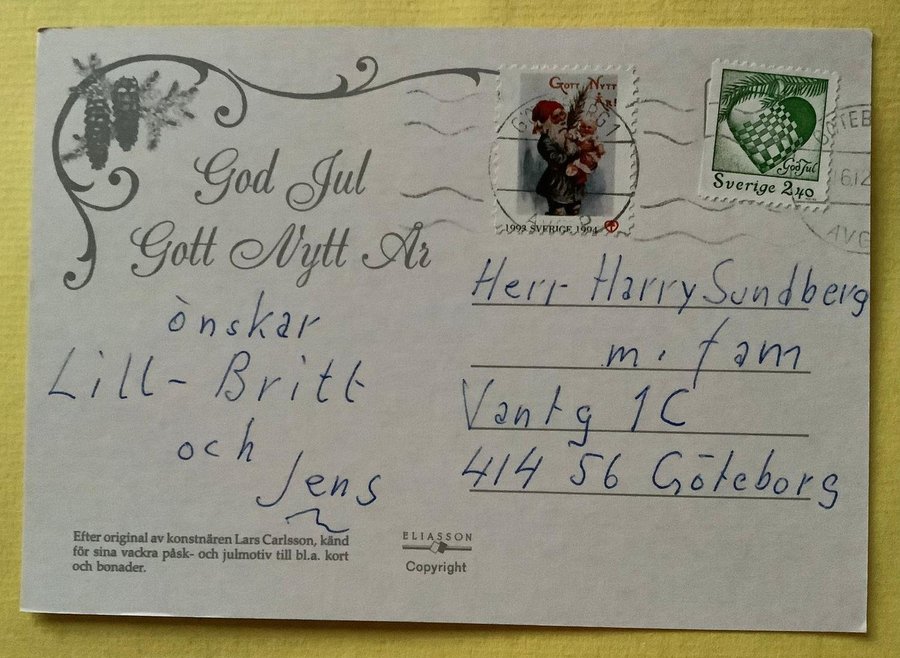 God Jul
Gott Nytt År
önskar
Lill-Britt
och
Jens
Efter original av konstnären Lars Carlsson, känd
för sina vackra påsk- och julmotiv till bl.a. kort
och bonader.
ELIASSON
Copyright
GOTT NYTT
ÅR!
1993 SVERIGE 1994
God Jul
Sverige 2,40
Herr Harry Sundberg
m. fam
Vantg 1C
414 56 Göteborg